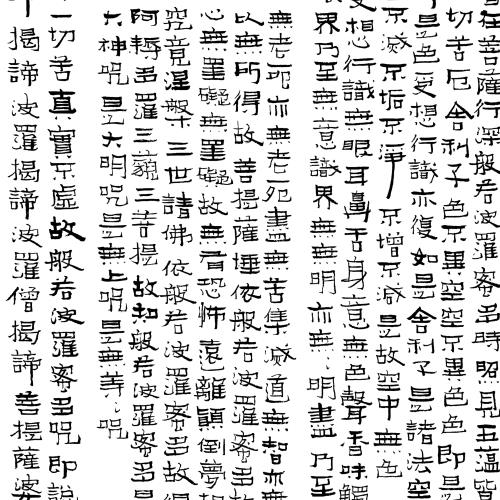 在菩薩行深般若波羅蜜多時照見五蘊皆
切苦厄舍利子色不異空空不異色色即是
是色受想行識亦復如是舍利子是諸法空
不滅不垢不淨不增不減是故空中無色
受想行識無眼耳鼻舌身意無色聲香味觸
界乃至無意識界無無明亦無、明盡乃至
無老死亦無老死盡無苦集滅道無智亦無
以無所得故菩提薩埵依般若波羅蜜多故
心無罣礙無罣礙故無有恐怖遠離顛倒夢想
究竟涅槃三世諸佛依般若波羅蜜多故得
阿耨多羅三藐三菩提故知般若波羅蜜多是
大神咒是大明咒是無上咒是無等、咒
一切苦真實不虛故般若波羅蜜多咒即說
揭諦波羅揭諦波羅僧揭諦菩提薩婆